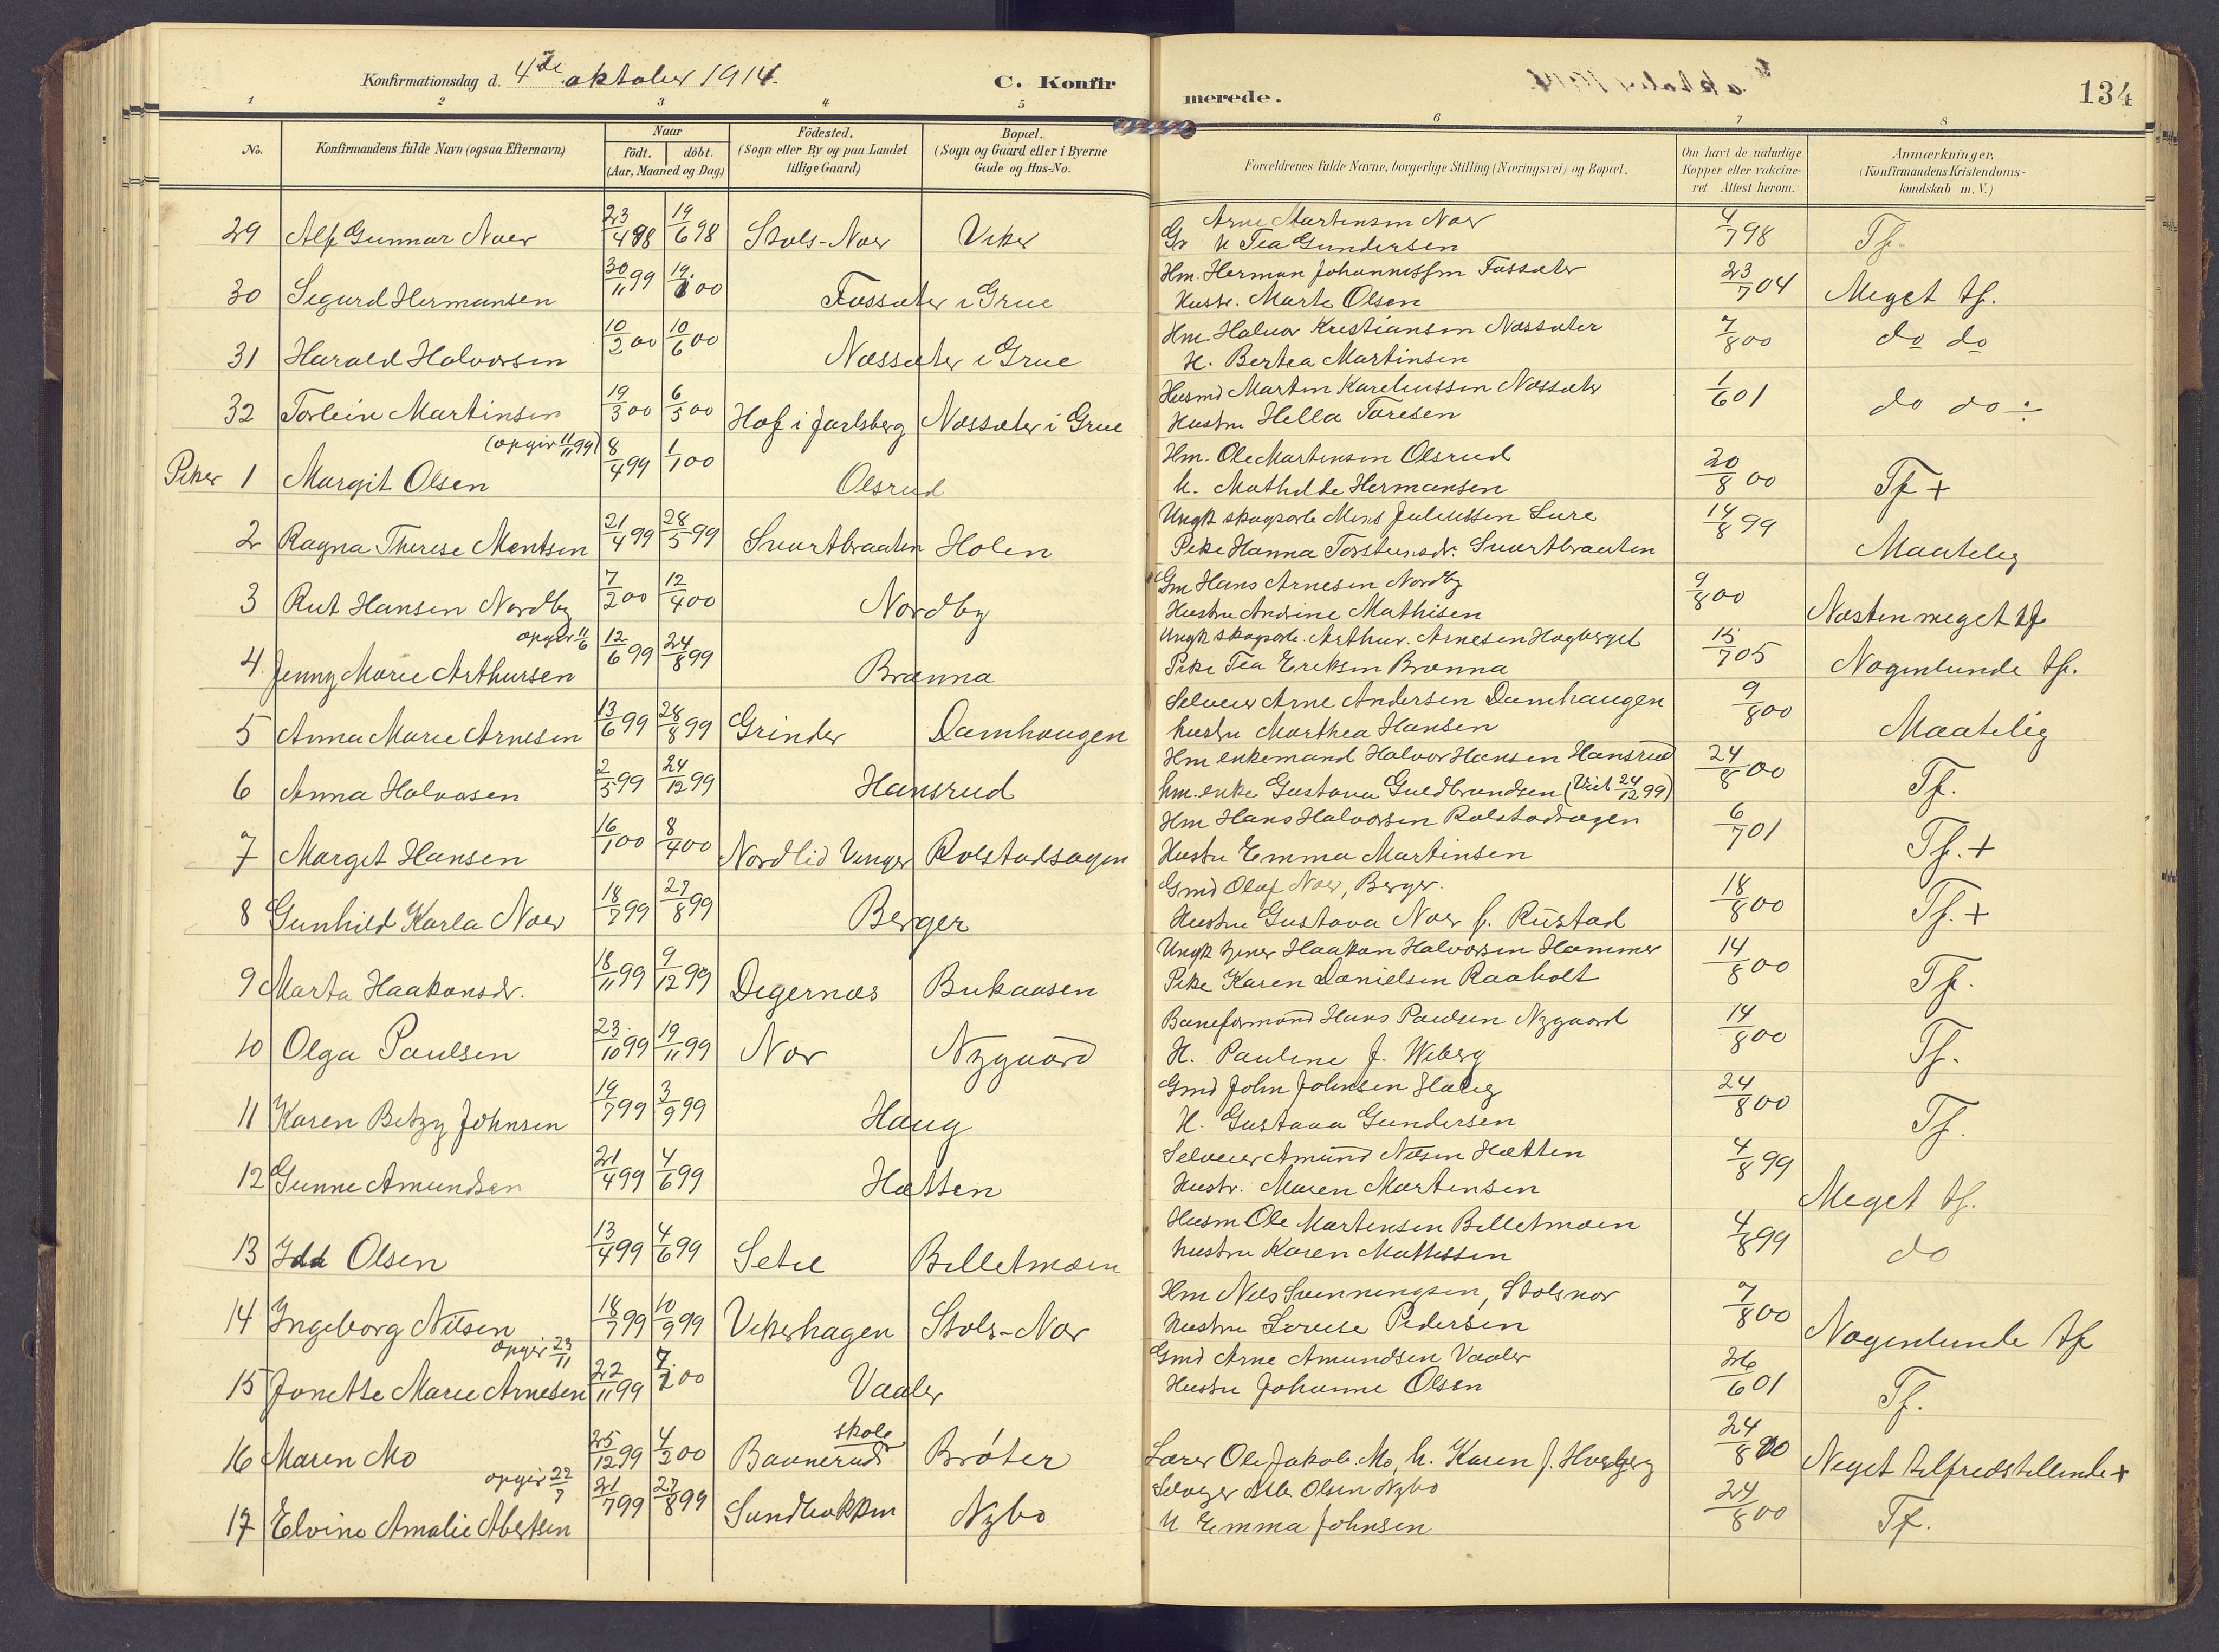 Konfirmationsdag d. 4de oktober 1914.
C. Konfir
merede.
134
1 2 3 4 5 6 7 8
No.
Konfirmandens fulde Navn (ogsaa Efternavn)
Naar
födt. döbt.
(Aar, Maaned og Dag)
Födested.
(Sogn eller By og paa Landet
tillige Gaard)
Bopæl.
(Sogn og Gaard eller i Byerne
Gade og Hus-No.
Forældrenes fulde Navne, borgerlige Stilling (Næringsvei) og Bopæl.
Om havt de naturlige
Kopper eller vakcine-
ret Attest herom.
Anmærkninger.
(Konfirmandens Kristendoms-
kundskab m. V.)
29 Alf Gunnar Noer 23/4 98 19/6 98 Stols-Noer Viker Arne Martinsen Noer 4/7 98 Tf.
H Tea Gundersen
30 Sigurd Hermansen 30/11 99 19/00 Fossæter i Grue Hm. Herman Johannessen Fossæter 23/7 04 Meget tf.
Hustr. Marte Olsen
31 Harald Halvorsen 10/2 00 10/6 00 Næssæter i Grue Hm. Halvor Kristiansen Næssæter 7/8 00 do do
H. Bertea Martinsen
32 Torlein Martinsen 19/3 00 6/5 00 Hof i Jarlsberg Næssæter i Grue Husmd Martin Kareliussen Næssæter 1/6 01 do do
Hustru Hella Toresen
(opgir 11/11 99)
Piker 1 Margit Olsen 8/4 99 1/1 00 Olsrud Hm. Ole Martinsen Olsrud 20/8 00 Tf +
h. Mathilde Hermansen
2 Ragna Therese Mentsen 21/4 99 28/5 99 Svartbraaten Holen Ungk skogsarb Mens Juliussen Lure 14/8 99 Maatelig
Pike Hanna Torstensdr. Svartbraaten
3 Rut Hansen Nordby 7/2 00 12/4 00 Nordby Gm Hans Arnesen Nordby 9/8 00 Næsten meget tf
Hustru Andrine Mathisen
opgir 11/6
4. Jenny Marie Arthursen 12/6 99 24/8 99 Brænna Ungk skogsarb. Arthur Arnesen Hogberget 15/7 05 Nogenlunde tf.
Pike Tea Eriksen Brænna
5 Anna Marie Arnesen 13/6 99 28/8 99 Grinder Damhaugen Selveier Arne Andersen Damhaugen 9/8 00 Maatelig
hustru Marthea Hansen
6 Anna Halvorsen 2/5 99 24/12 99 Hansrud Hm enkemand Halvor Hansen Hansrud 24/8 00 Tf.
hm. enke Gustava Guldbrandsen (Viet 24/12 99)
7 Marget Hansen 16/1 00 8/4 00 Nordlid Vinger Rolstadsagen Hm Hans Halvorsen Rolstadsagen 6/7 01 Tf. +
Hustru Emma Martinsen
8 Gunhild Karla Noer 18/7 99 27/8 99 Berger Gmd Olaf Noer, Berger. 18/8 00 Tf. +
Hustru Gustava Noer f. Rustad
9 Marta Haakonsdr. 18/11 99 9/12 99 Degernæs Bukaasen Ungk tjener Haakon Halvorsen Hammer 14/8 00 Tf.
Pike Karen Danielsen Raaholt
10 Olga Paulsen 23/10 99 19/11 99 Nor Nygaard Baneformand Hans Paulsen Nygaard 14/8 00 Tf.
H. Pauline f. Wiberg
11 Karen Betzy Johnsen 19/7 99 3/9 99 Haug Gmd John Johnsen Haug 24/8 00 Tf.
H. Gustava Gundersen
12 Gunne Amundsen 21/4 99 4/6 99 Hætten Selveier Amund Nilsen Hætten 4/8 99 Meget tf.
Hustr. Maren Martinsen
13 Ida Olsen 13/4 99 4/6 99 Billetmoen Husm Ole Martinsen Billetmoen 4/8 99 do
hustru Karen Mathissen
14 Ingeborg Nilsen 18/7 99 10/9 99 Vikerhagen Stols-Nor Hm Nils Svenningsen, Stolsnor 7/8 00 Nogenlunde tf
Hustru Lovise Pedersen
opgir 23/11
15 Jonette Marie Arnesen 22/11 99 7/00 Vaaler Gmd Arne Amundsen Vaaler 26/6 01 Tf.
Hustru Johanne Olsen
16 Maren Mo 25/12 99 4/2 00 Baunerud skole Brøter Lærer Ole Jakob Mo, h. Karen f. 24/8 00 Meget tilfredstillende +
opgir 22/7
17 Elvine Amalie Abertsen 21/7 99 27/8 99 Sundbakken Nybo Selveier Olsen Nybo 24/8 00 Tf.
H Emma Johnsen